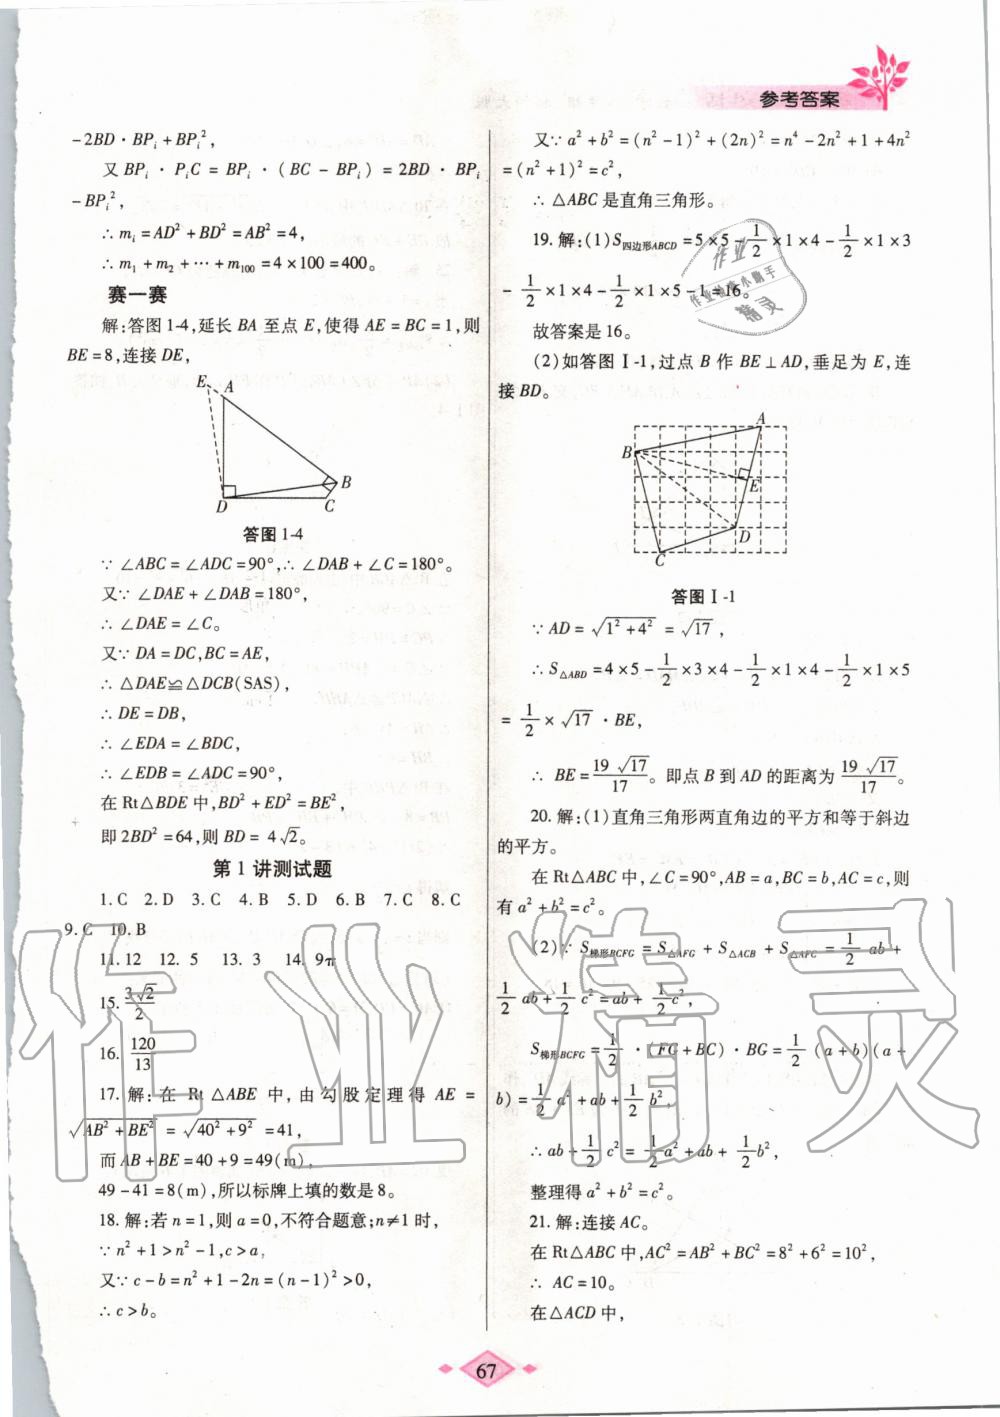 参考答案
-2BD·BPᵢ+BPᵢ²,
又 BPᵢ · PᵢC = BPᵢ · (BC - BPᵢ) = 2BD · BPᵢ
-BPᵢ²,
∴ mᵢ=AD²+BD²=AB²=4,
∴ m₁+m₂+…+m₁₀₀=4×100=400。
赛一赛
解:答图1-4,延长 BA 至点 E,使得 AE=BC=1,则
BE=8,连接 DE,
E
A
B
D
C
答图1-4
∵ ∠ABC=∠ADC=90°,∴ ∠DAB+∠C=180°。
又∵ ∠DAE+∠DAB=180°,
∴ ∠DAE=∠C。
又∵ DA=DC,BC=AE,
∴ △DAE≌△DCB(SAS),
∴ DE=DB,
∴ ∠EDA=∠BDC,
∴ ∠EDB=∠ADC=90°,
在Rt△BDE中,BD²+ED²=BE²,
即2BD²=64,则BD=4√2。
第1讲测试题
1.C 2.D 3.C 4.C 5.D 6.B 7.C 8.C
9.C 10.B
11.12 12.5 13.3 14.9π
15. 3√2/2
16. 120/13
17.解:在 Rt△ABE 中,由勾股定理得 AE =
√(AB²+BE²) = √(40²+9²) =41,
而AB+BE=40+9=49(m),
49-41=8(m),所以标牌上填的数是8。
18.解:若n=1,则a=0,不符合题意;n≠1时,
∵ n²+1>n²-1,c>a,
又∵ c-b=n²+1-2n=(n-1)²>0,
∴ c>b。
又∵ a²+b²=(n²-1)²+(2n)²=n⁴-2n²+1+4n²
=(n²+1)²=c²,
∴ △ABC是直角三角形。
19.解:(1)S四边形ABCD=5×5-1/2×1×4-1/2×1×3
-1/2×1×4-1/2×1×5-1=16。
故答案是16。
(2)如答图Ⅰ-1,过点B作BE⊥AD,垂足为E,连
接BD。
A
B
E
D
C
答图Ⅰ-1
∵ AD=√(1²+4²)=√17,
∴ S△ABD=4×5-1/2×3×4-1/2×1×4-1/2×1×5
=1/2×√17·BE,
∴ BE=19√17/17。即点B到AD的距离为19√17/17。
20.解:(1)直角三角形两直角边的平方和等于斜边
的平方。
在Rt△ABC中,∠C=90°,AB=a,BC=b,AC=c,则
有a²+b²=c²。
(2)∵ S梯形BCFG=S△AFG+S△ACB+S△AFC=1/2 ab+
1/2 ab+1/2 c²=ab+1/2 c²,
S梯形BCFG=1/2·(FG+BC)·BG=1/2(a+b)(a+
b)=1/2 a²+ab+1/2 b²,
∴ ab+1/2 c²=1/2 a²+ab+1/2 b²,
整理得a²+b²=c²。
21.解:连接AC。
在Rt△ABC中,AC²=AB²+BC²=8²+6²=10²,
∴ AC=10。
在△ACD中,
67
作业精灵